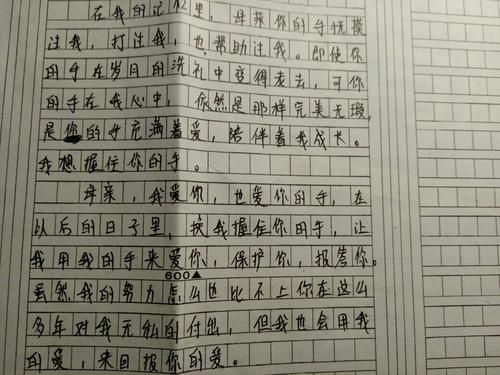 在我的记忆里，母亲你的手抚摸
过我，打过我，也帮助过我。即使你
的手在岁月的洗礼中变得老去，可你
的手在我心中，依然是那样完美无瑕，
是你的手充满着爱，陪伴着我成长。
我想握住你的手。
母亲，我爱你，也爱你的手，在
以后的日子里，换我握住你的手，让
我用我的手来爱你，保护你，报答你。
600▲
虽然我的努力怎么也比不上你在这么
多年对我无私的付出，但我也会用我
的爱，来回报你的爱。